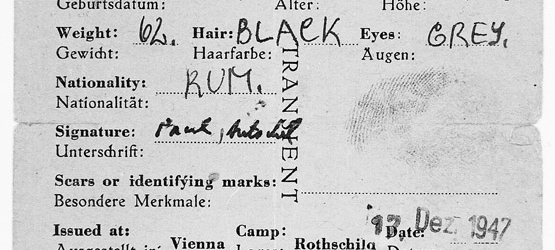 Geburtsdatum: Alter: Höhe:
Weight: 62. Hair: BLACK Eyes: GREY.
Gewicht: Haarfarbe: Augen:
TRANSIENT
Nationality: RUM.
Nationalität:
Signature: Paul,
Unterschrift:
Scars or identifying marks:
Besondere Merkmale:
12 Dez. 1947
Issued at: Camp: Date:
Vienna Rothschild